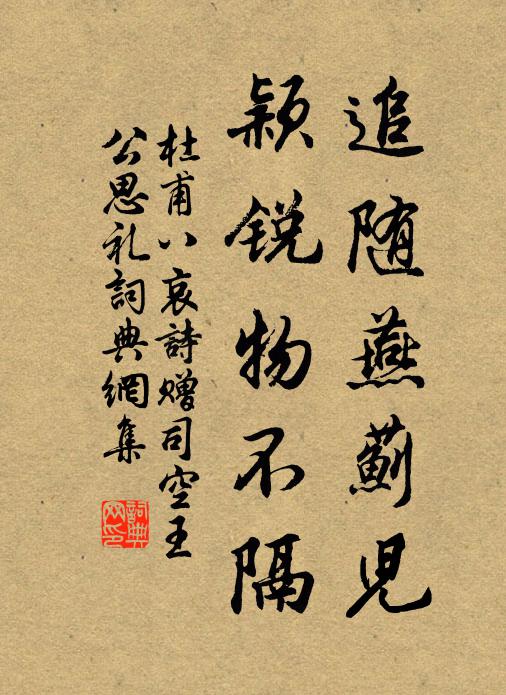 追随燕薊児
穎锐物不隔
杜甫八哀詩赠司空王
公思礼詞典網集
詞典
网印